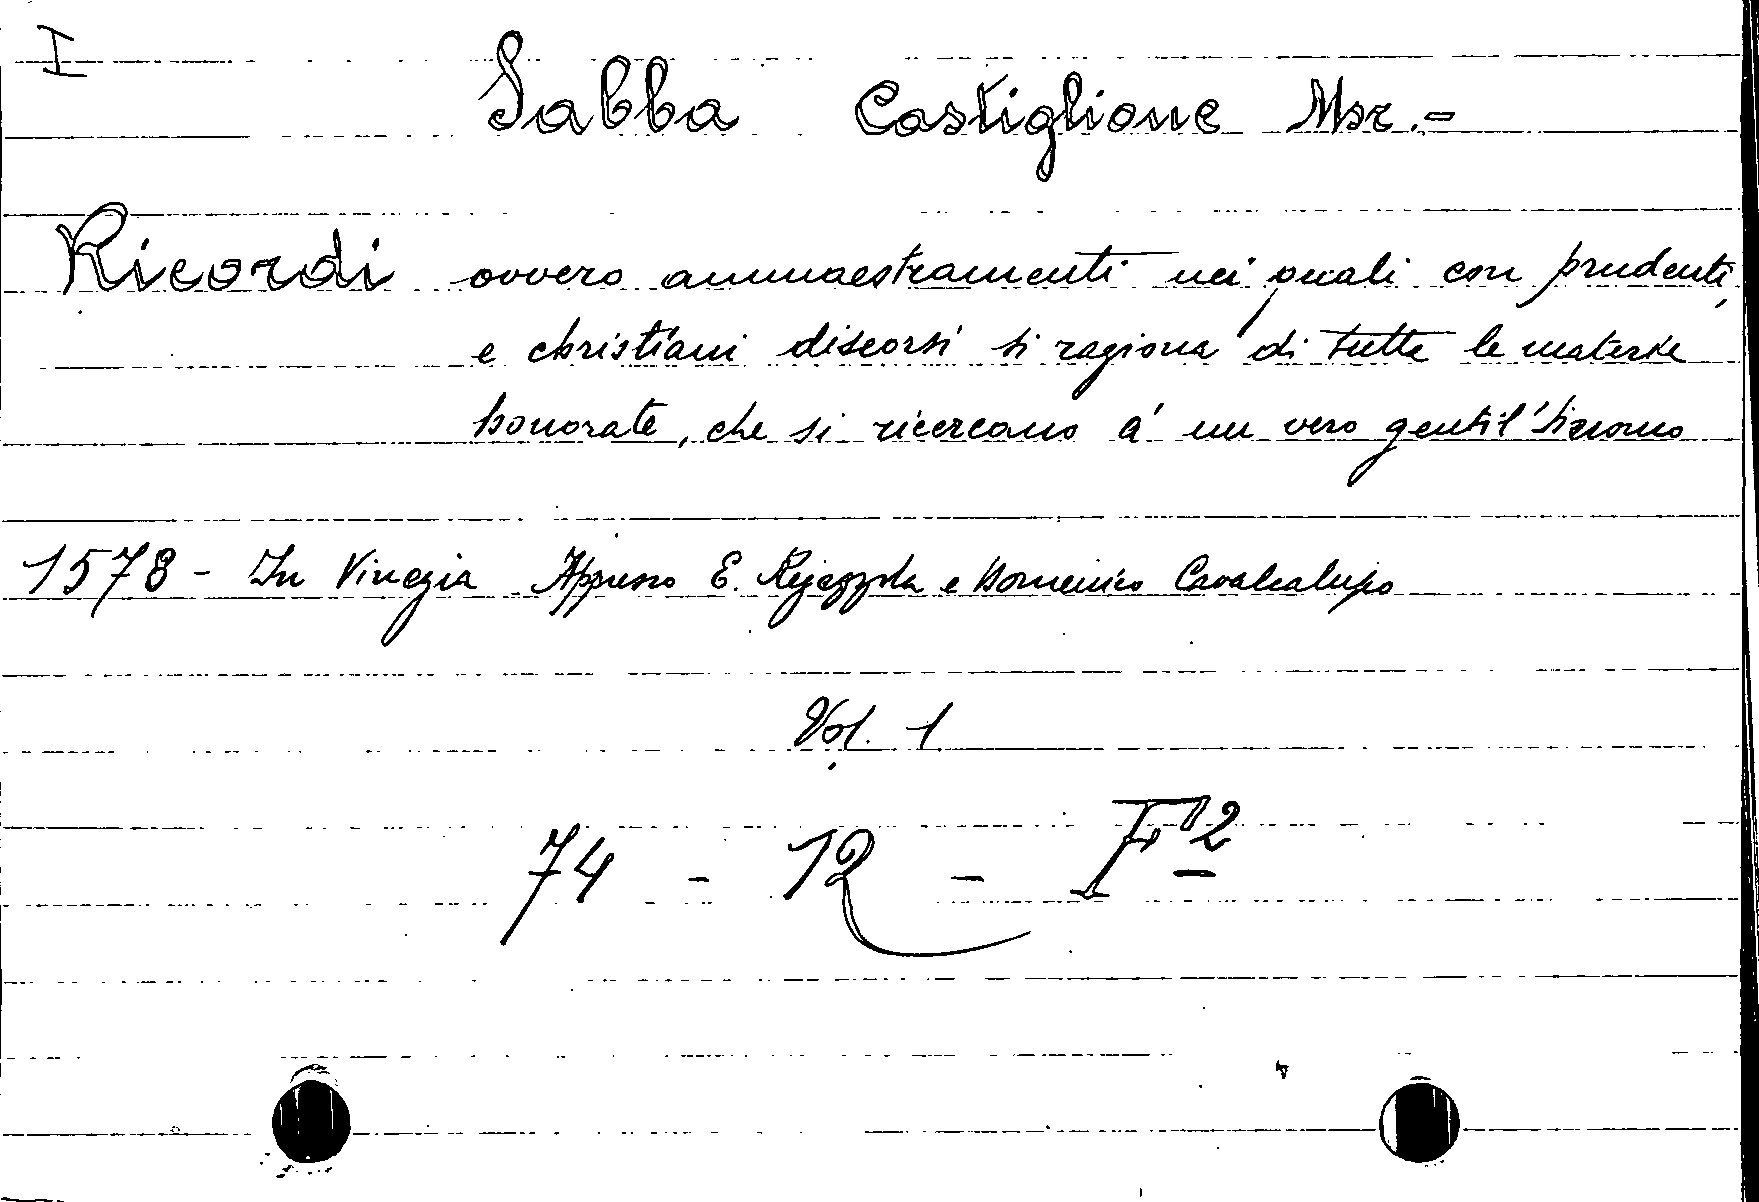 I
Sabba Castiglione Msr.=
Ricordi ovvero ammaestramenti nei quali con prudenti,
e christiani discorsi si ragiona di tutte le materie
honorate, che si ricercano á un vero gentil'huomo
1578 - In Vinegia Appresso E. e Domenico Cavalcalupo
Vol. 1
74 - 12 - F2